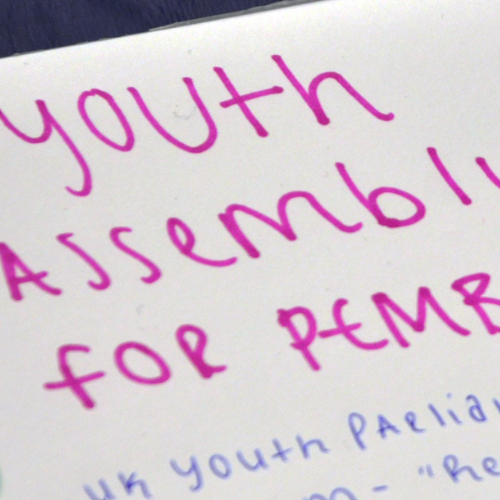 youth
Assembly
FOR PEMB
UK youth PArlia
m - "Re